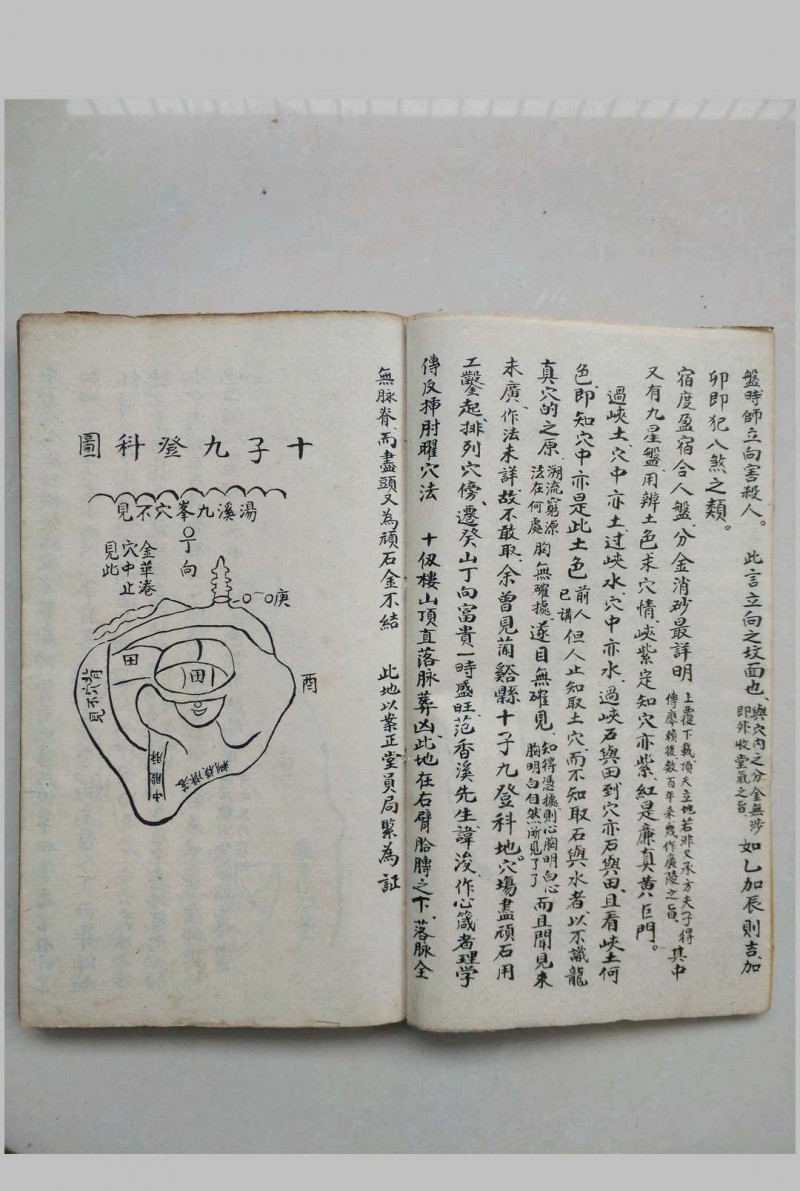 盤時師立向害殺人。　此言立向之坟面也、與穴內之分金無涉即外收堂氣之旨、如乙加辰則吉、加
卯即犯八煞之類。
宿度盈宿合人盤、分金消砂最詳明上覆下載、頂天立地若非丈承方夫子得傳廖賴後数百年来幾作廣陵之旨、其中
又有九星盤、用辨土色求穴情、峽紫定知穴亦紫、紅是廉貞黄巨門。
過峽土、穴中亦土、过峽水、穴中亦水、過峽石與田到穴亦石與田、且看峽土何
色、即知穴中亦是此土色前人已講但人止知取土穴、而不知取石與水者、以不識龍
真穴的之原溯流窮源法在何處胸無確據、遂目無確見、知得憑據則心胸明白心胸明白自然所見了了而且聞見来
未廣、作法未詳、故不敢取、余曾見蘭谿縣十子九登科地。穴塲盡頑石用
工鑿起排列穴傍、遷癸山丁向富貴一時盛旺、范香溪先生諱浚、作心箴者理學
傳反挿肘曜穴法　十伋樓山頂直落脉葬凶、此地在右臂胎膊之下、落脉全
無脉脊、而盡頭又為頑石金不結　此地以業正堂員局緊為証
十子九登科圖
湯溪九峯穴不見
丁向
金華港
穴中止
見此
庚
酉
田
田
背穴不見